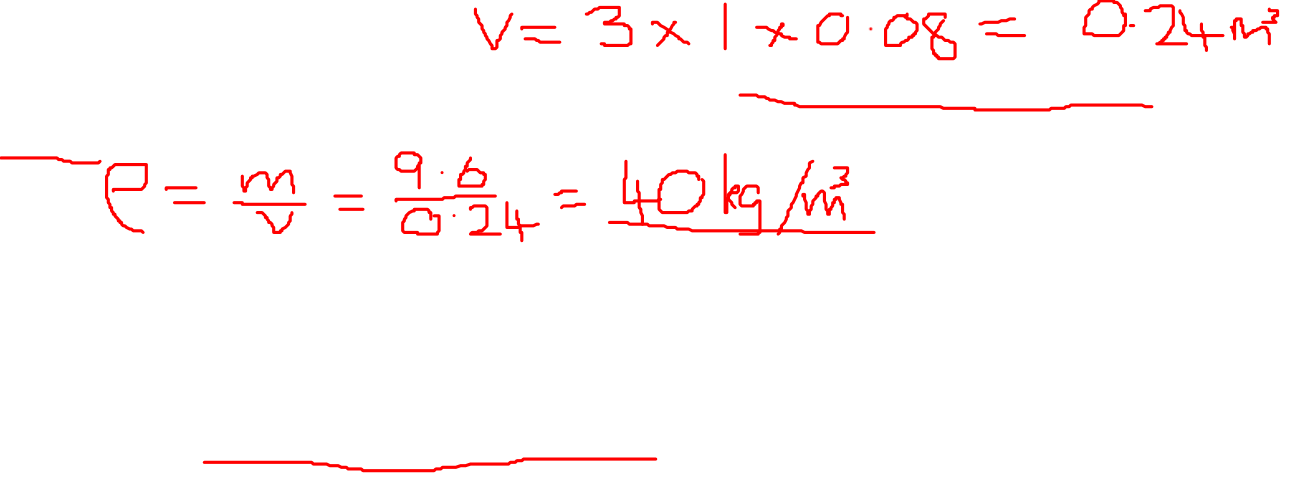 V = 3 × 1 × 0.08 = 0.24 m³
ρ = m/v = 9.6/0.24 = 40 kg/m³